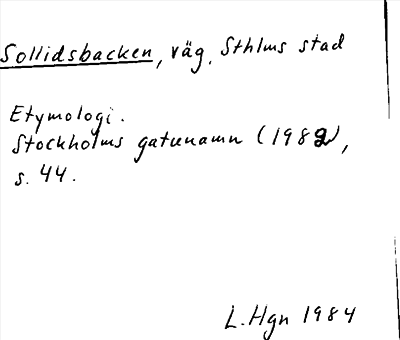 Sollidsbacken, väg, Sthlms stad
Etymologi.
Stockholms gatunamn (1982),
s. 44.
L. Hgn 1984